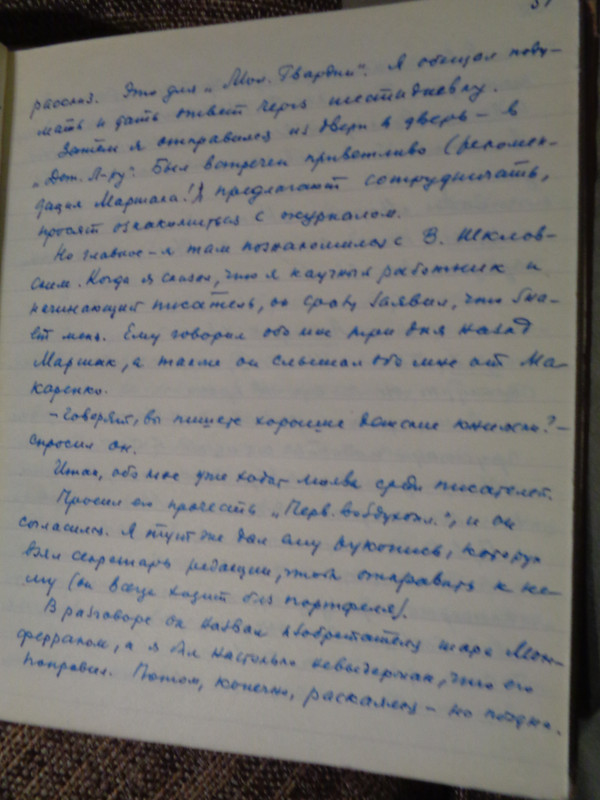 37
рассказ. Это для „Мол. Гвардии". Я обещал поду-
мать и дать ответ через шестидневку.
Затем я отправился из двери в дверь – в
„Дет. Л-ру". Был встречен приветливо (рекомен-
дация Маршака!) предлагают сотрудничать,
просят ознакомиться с журналом.
Но главное – я там познакомился с В. Шклов-
ским. Когда я сказал, что я научный работник и
начинающий писатель, он сразу заявил, что зна-
ет меня. Ему говорил обо мне три дня назад
Маршак, а также он слышал обо мне от Ма-
каренко.
– Говорят, вы пишете хорошие детские книжки? –
спросил он.
Итак, обо мне уже ходит молва среди писателей.
Просил его прочесть „Перв. воздухопл.", и он
согласился. Я тут же дал ему рукопись, которую
взял секретарь редакции, чтоб отправить к не-
му (он всегда ходит без портфеля).
В разговоре он назвал изобретателя шара Мон-
ферраном, а я был настолько невыдержан, что его
поправил. Потом, конечно, раскаялся – но поздно.